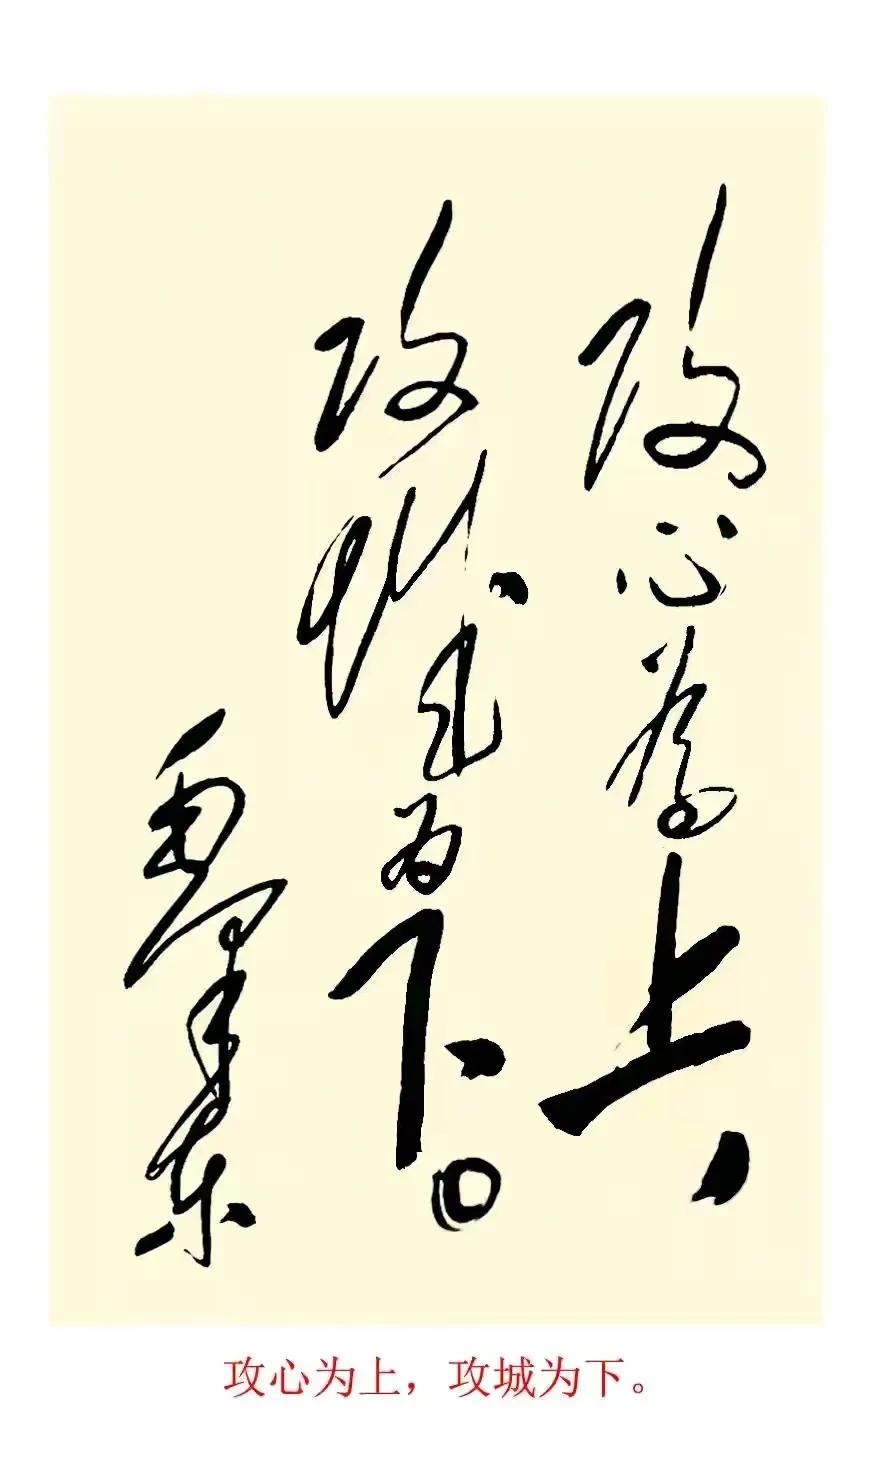 攻心為上，
攻城为下。
毛泽东
攻心为上，攻城为下。